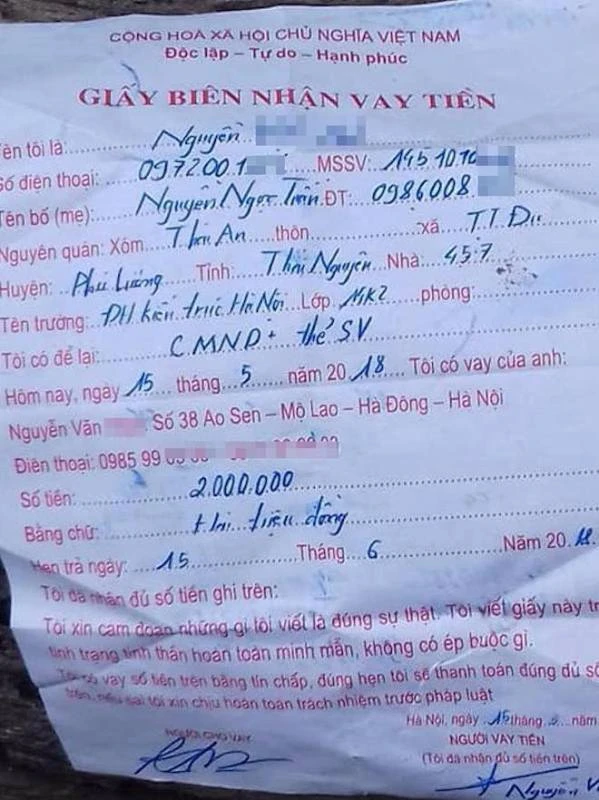 CỘNG HÒA XÃ HỘI CHỦ NGHĨA VIỆT NAM
Độc lập – Tự do – Hạnh phúc
GIẤY BIÊN NHẬN VAY TIỀN
Tên tôi là: Nguyễn
Số điện thoại: 097200.1 MSSV: 1451010
Tên bố (mẹ): Nguyễn Ngọc Trân ĐT: 0986008
Nguyên quán: Xóm Thái An thôn xã T.T Đu
Huyện: Phú Lương Tỉnh: Thái Nguyên Nhà: 457
Tên trường: ĐH kiến trúc Hà Nội Lớp 14K2 phòng:
Tôi có để lại: CMND + thẻ SV
Hôm nay, ngày 15 tháng 5 năm 2018 Tôi có vay của anh:
Nguyễn Văn Số 38 Ao Sen – Mộ Lao – Hà Đông – Hà Nội
Điện thoại: 0985 99
Số tiền: 2.000.000
Bằng chữ: Hai triệu đồng
Hẹn trả ngày: 15 Tháng 6 Năm 2018
Tôi đã nhận đủ số tiền ghi trên:
Tôi xin cam đoan những gì tôi viết là đúng sự thật. Tôi viết giấy này tr
tình trạng tinh thần hoàn toàn minh mẫn, không có ép buộc gì.
Tôi có vay số tiền trên bằng tín chấp, đúng hẹn tôi sẽ thanh toán đúng đủ số
trên, nếu sai tôi xin chịu hoàn toàn trách nhiệm trước pháp luật
Hà Nội, ngày 15 tháng 5 năm
NGƯỜI CHO VAY
NGƯỜI VAY TIỀN
(Tôi đã nhận đủ số tiền trên)
Nguyễn V